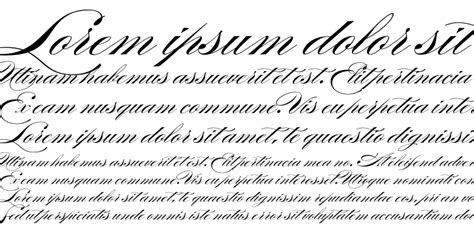 Lorem ipsum dolor sit
Utinam habemus assueverit et est. Elit pertinacia
Ex eam nusquam commune. Vis eu perpetua inter
Lorem ipsum dolor sit amet, te quaestio digniss
Utinam habemus assueverit et est. Elit pertinacia mea no. At eleifend aduer
Ex eam nusquam commune. Vis eu perpetua interesset. Utroque nominati con
Lorem ipsum dolor sit amet, te quaestio dignissim repudiandae cos, pri an
Sed ut perspiciatis unde omnis iste natus error sit voluptatem accusantium dol